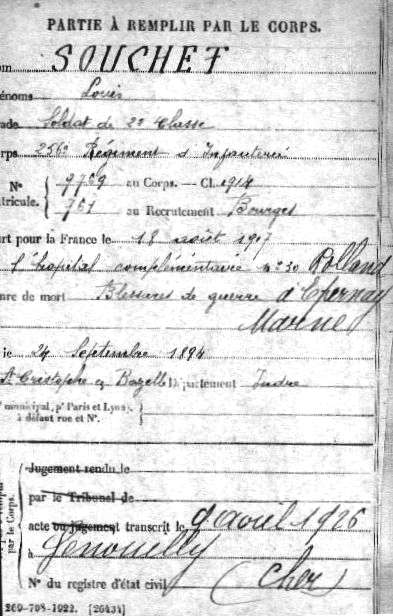 PARTIE À REMPLIR PAR LE CORPS.
om SOUCHET
énoms Louis
ade Soldat de 2e Classe
rps 256e Régiment d'Infanterie
N° 9769 au Corps. — Cl. 1914
tricule. 761 au Recrutement Bourges
rt pour la France le 18 août 1917
l'hôpital complémentaire n° 30 Rolland
nre de mort Blessures de guerre d'Epernay
Marne
ie 24 Septembre 1894
St Cristophe en Bazelle Département Indre
municipal, pr Paris et Lyon,
à défaut rue et N°.
par le Corps.
Jugement rendu le
par le Tribunal de
acte ou jugement transcrit le 9 avril 1926
à Genouilly
(Cher)
N° du registre d'état civil
260-708-1922. [26434]